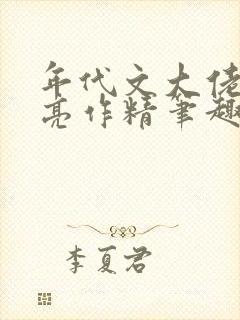 年代文大佬
亮作精笔趣
李夏君